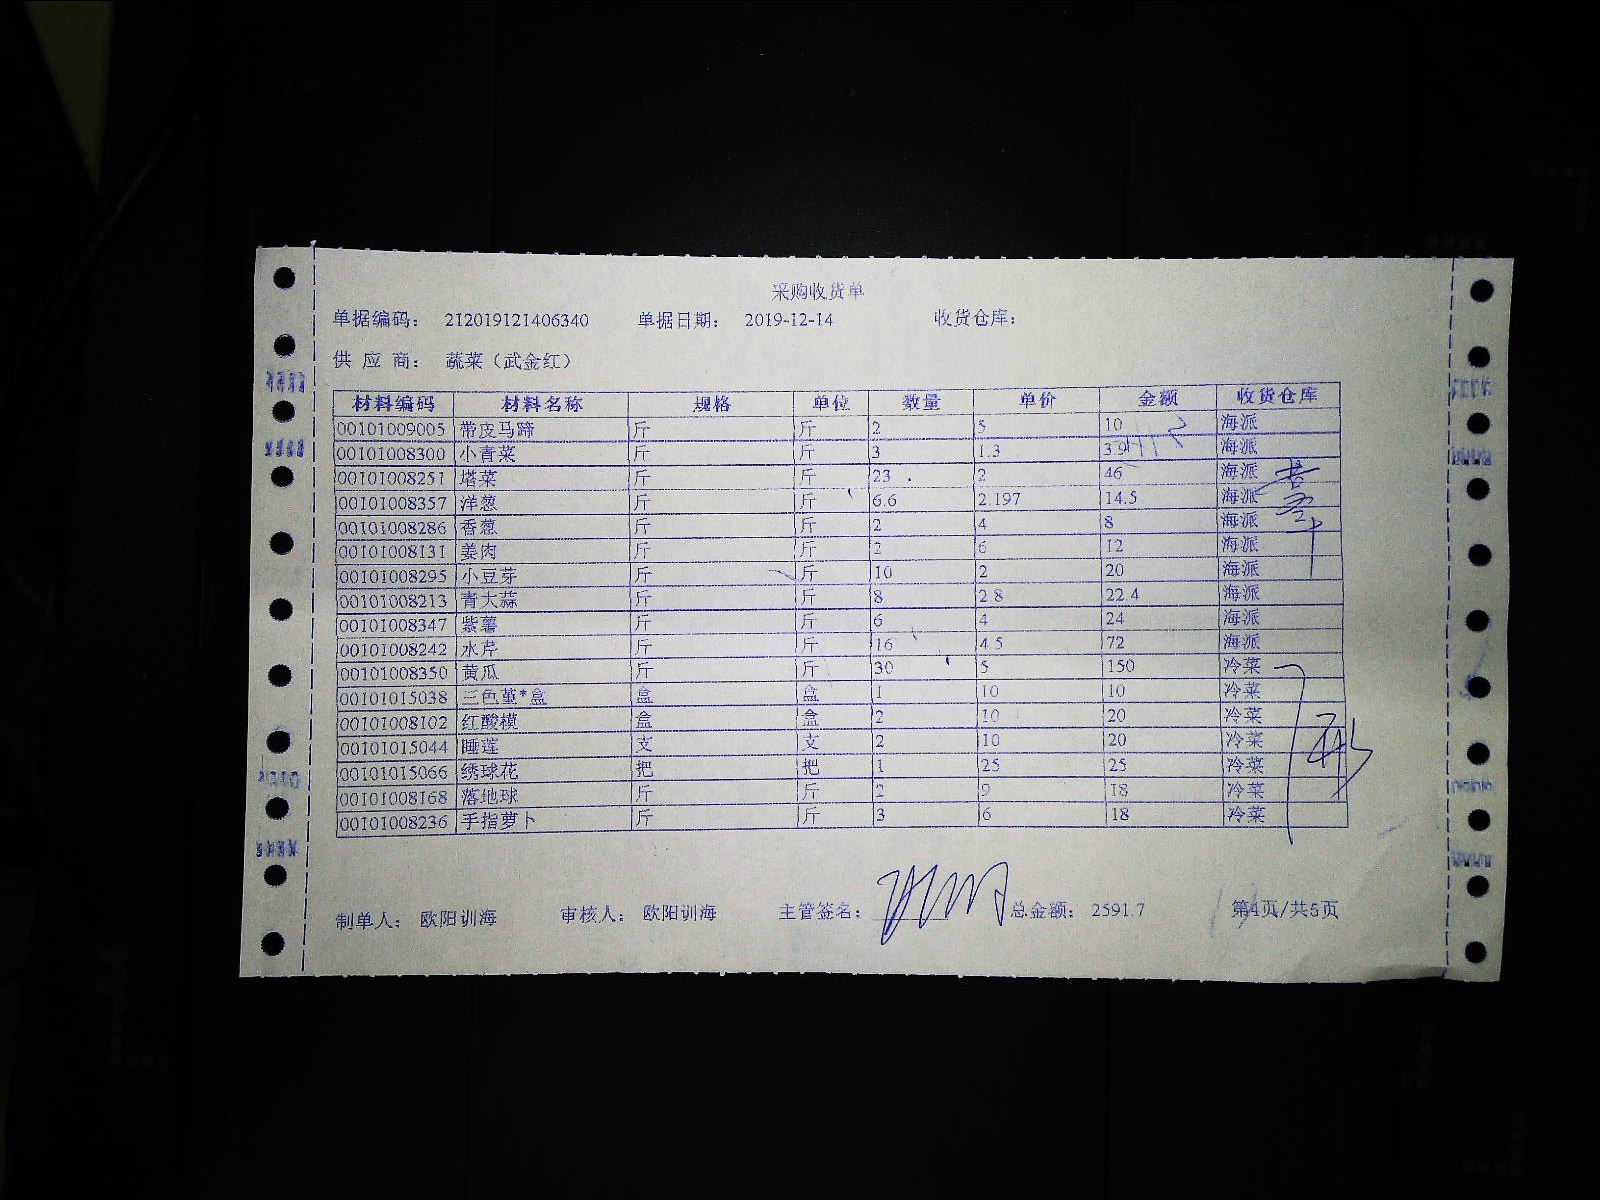 采购收货单
单据编码： 212019121406340 单据日期： 2019-12-14 收货仓库：
供 应 商： 蔬菜（武金红）
材料编码 材料名称 规格 单位 数量 单价 金额 收货仓库
00101009005 带皮马蹄 斤 斤 2 5 10 海派
00101008300 小青菜 斤 斤 3 1.3 3.9 海派
00101008251 塔菜 斤 斤 23 2 46 海派
00101008357 洋葱 斤 斤 6.6 2.197 14.5 海派
00101008286 香葱 斤 斤 2 4 8 海派
00101008131 姜肉 斤 斤 2 6 12 海派
00101008295 小豆芽 斤 斤 10 2 20 海派
00101008213 青大蒜 斤 斤 8 2.8 22.4 海派
00101008347 紫薯 斤 斤 6 4 24 海派
00101008242 水芹 斤 斤 16 4.5 72 海派
00101008350 黄瓜 斤 斤 30 5 150 冷菜
00101015038 三色堇*盒 盒 盒 1 10 10 冷菜
00101008102 红酸模 盒 盒 2 10 20 冷菜
00101015044 睡莲 支 支 2 10 20 冷菜
00101015066 绣球花 把 把 1 25 25 冷菜
00101008168 落地球 斤 斤 2 9 18 冷菜
00101008236 手指萝卜 斤 斤 3 6 18 冷菜
制单人： 欧阳训海 审核人： 欧阳训海 主管签名： 总金额： 2591.7 第4页/共5页